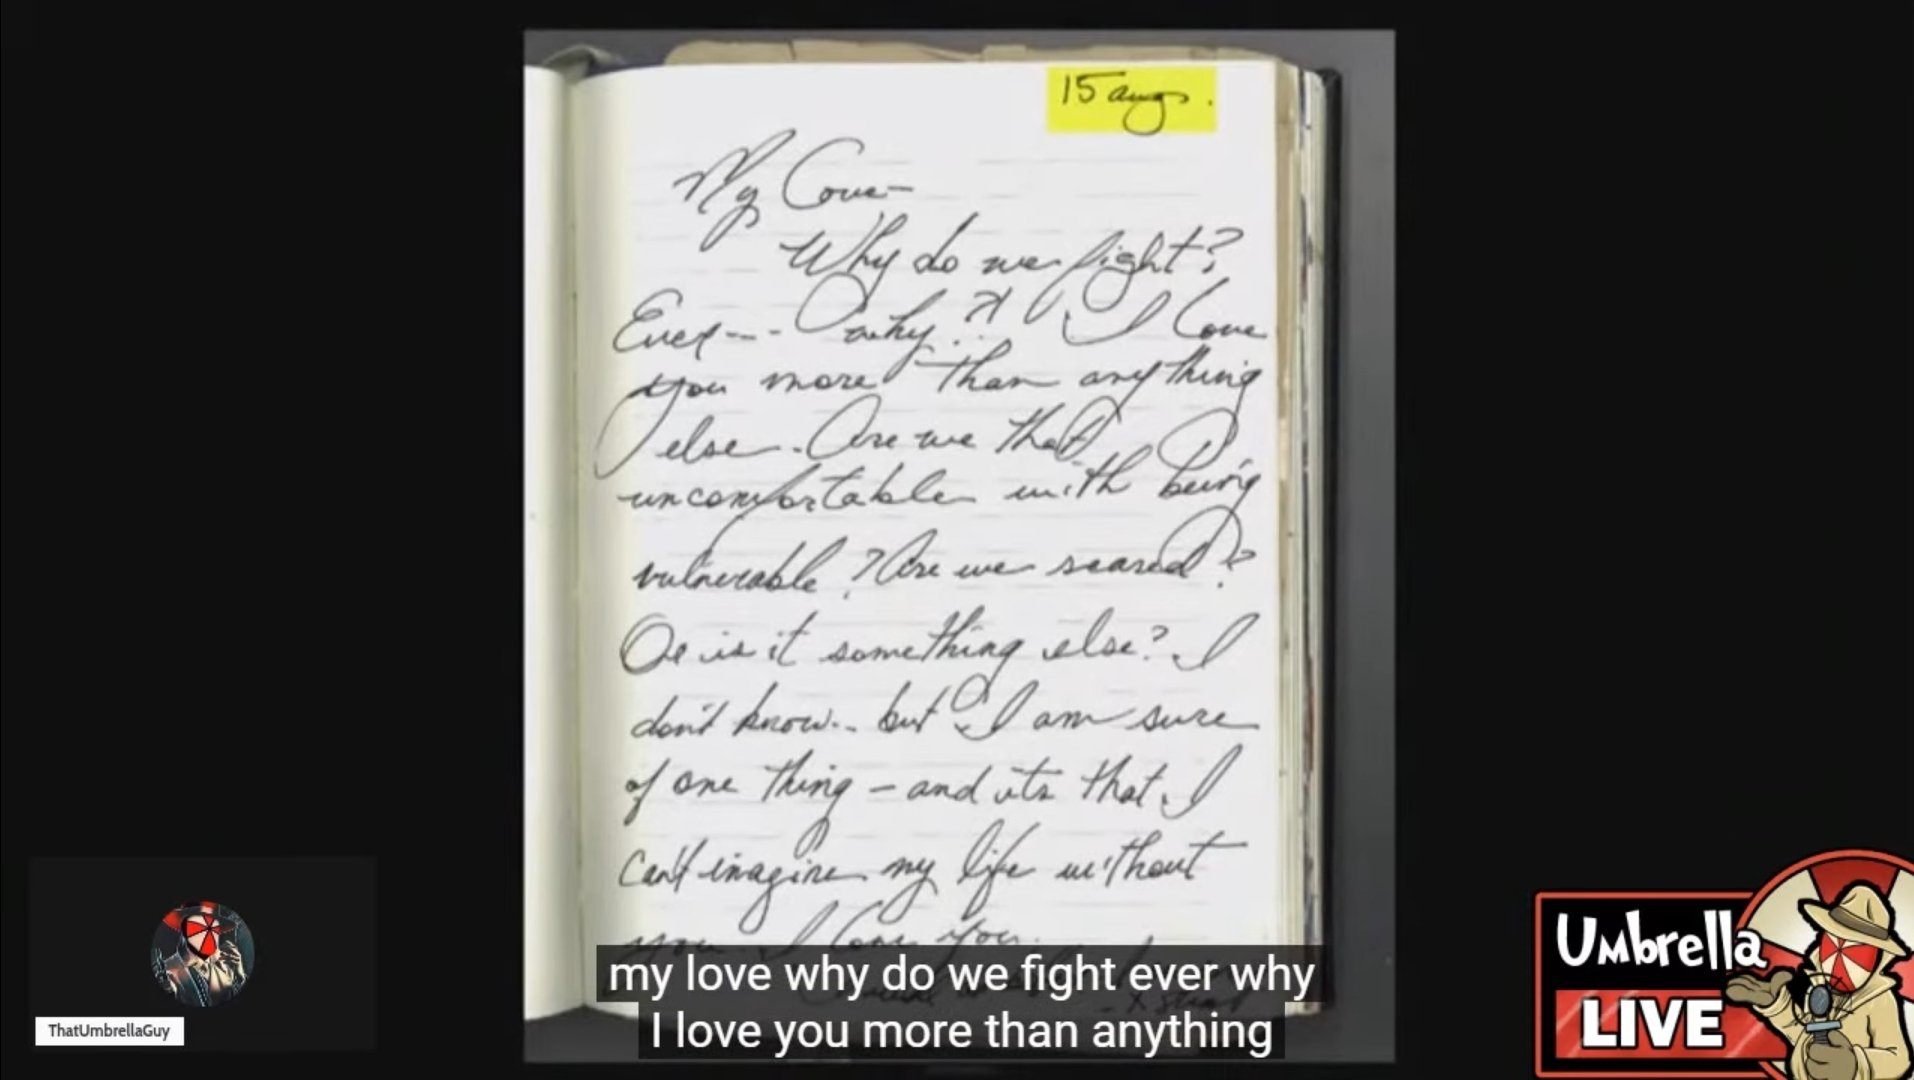 15 aug.
My Love—
Why do we fight?
Ever--- why??! I love
you more than anything
else. Are we that
uncomfortable with being
vulnerable? Are we scared?
Or is it something else? I
don't know.. but I am sure
of one thing – and its that I
can't imagine my life without
you. I love you.
my love why do we fight ever why
I love you more than anything
ThatUmbrellaGuy
UMbrella
LIVE